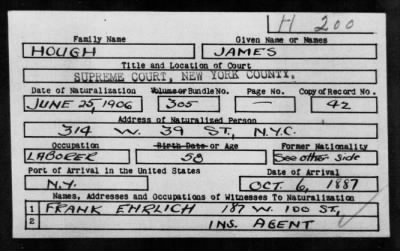 H 200
Family Name Given Name or Names
HOUGH JAMES
Title and Location of Court
SUPREME COURT, NEW YORK COUNTY.
Date of Naturalization Volume or Bundle No. Page No. Copy of Record No.
JUNE 25, 1906 305 — 42
Address of Naturalized Person
314 W. 39 ST., N.Y.C.
Occupation Birth Date or Age Former Nationality
LABORER 58 See other side
Port of Arrival in the United States Date of Arrival
N.Y. OCT. 6, 1887
Names, Addresses and Occupations of Witnesses To Naturalization
1 FRANK EHRLICH 187 W. 100 ST.,
2 INS. AGENT